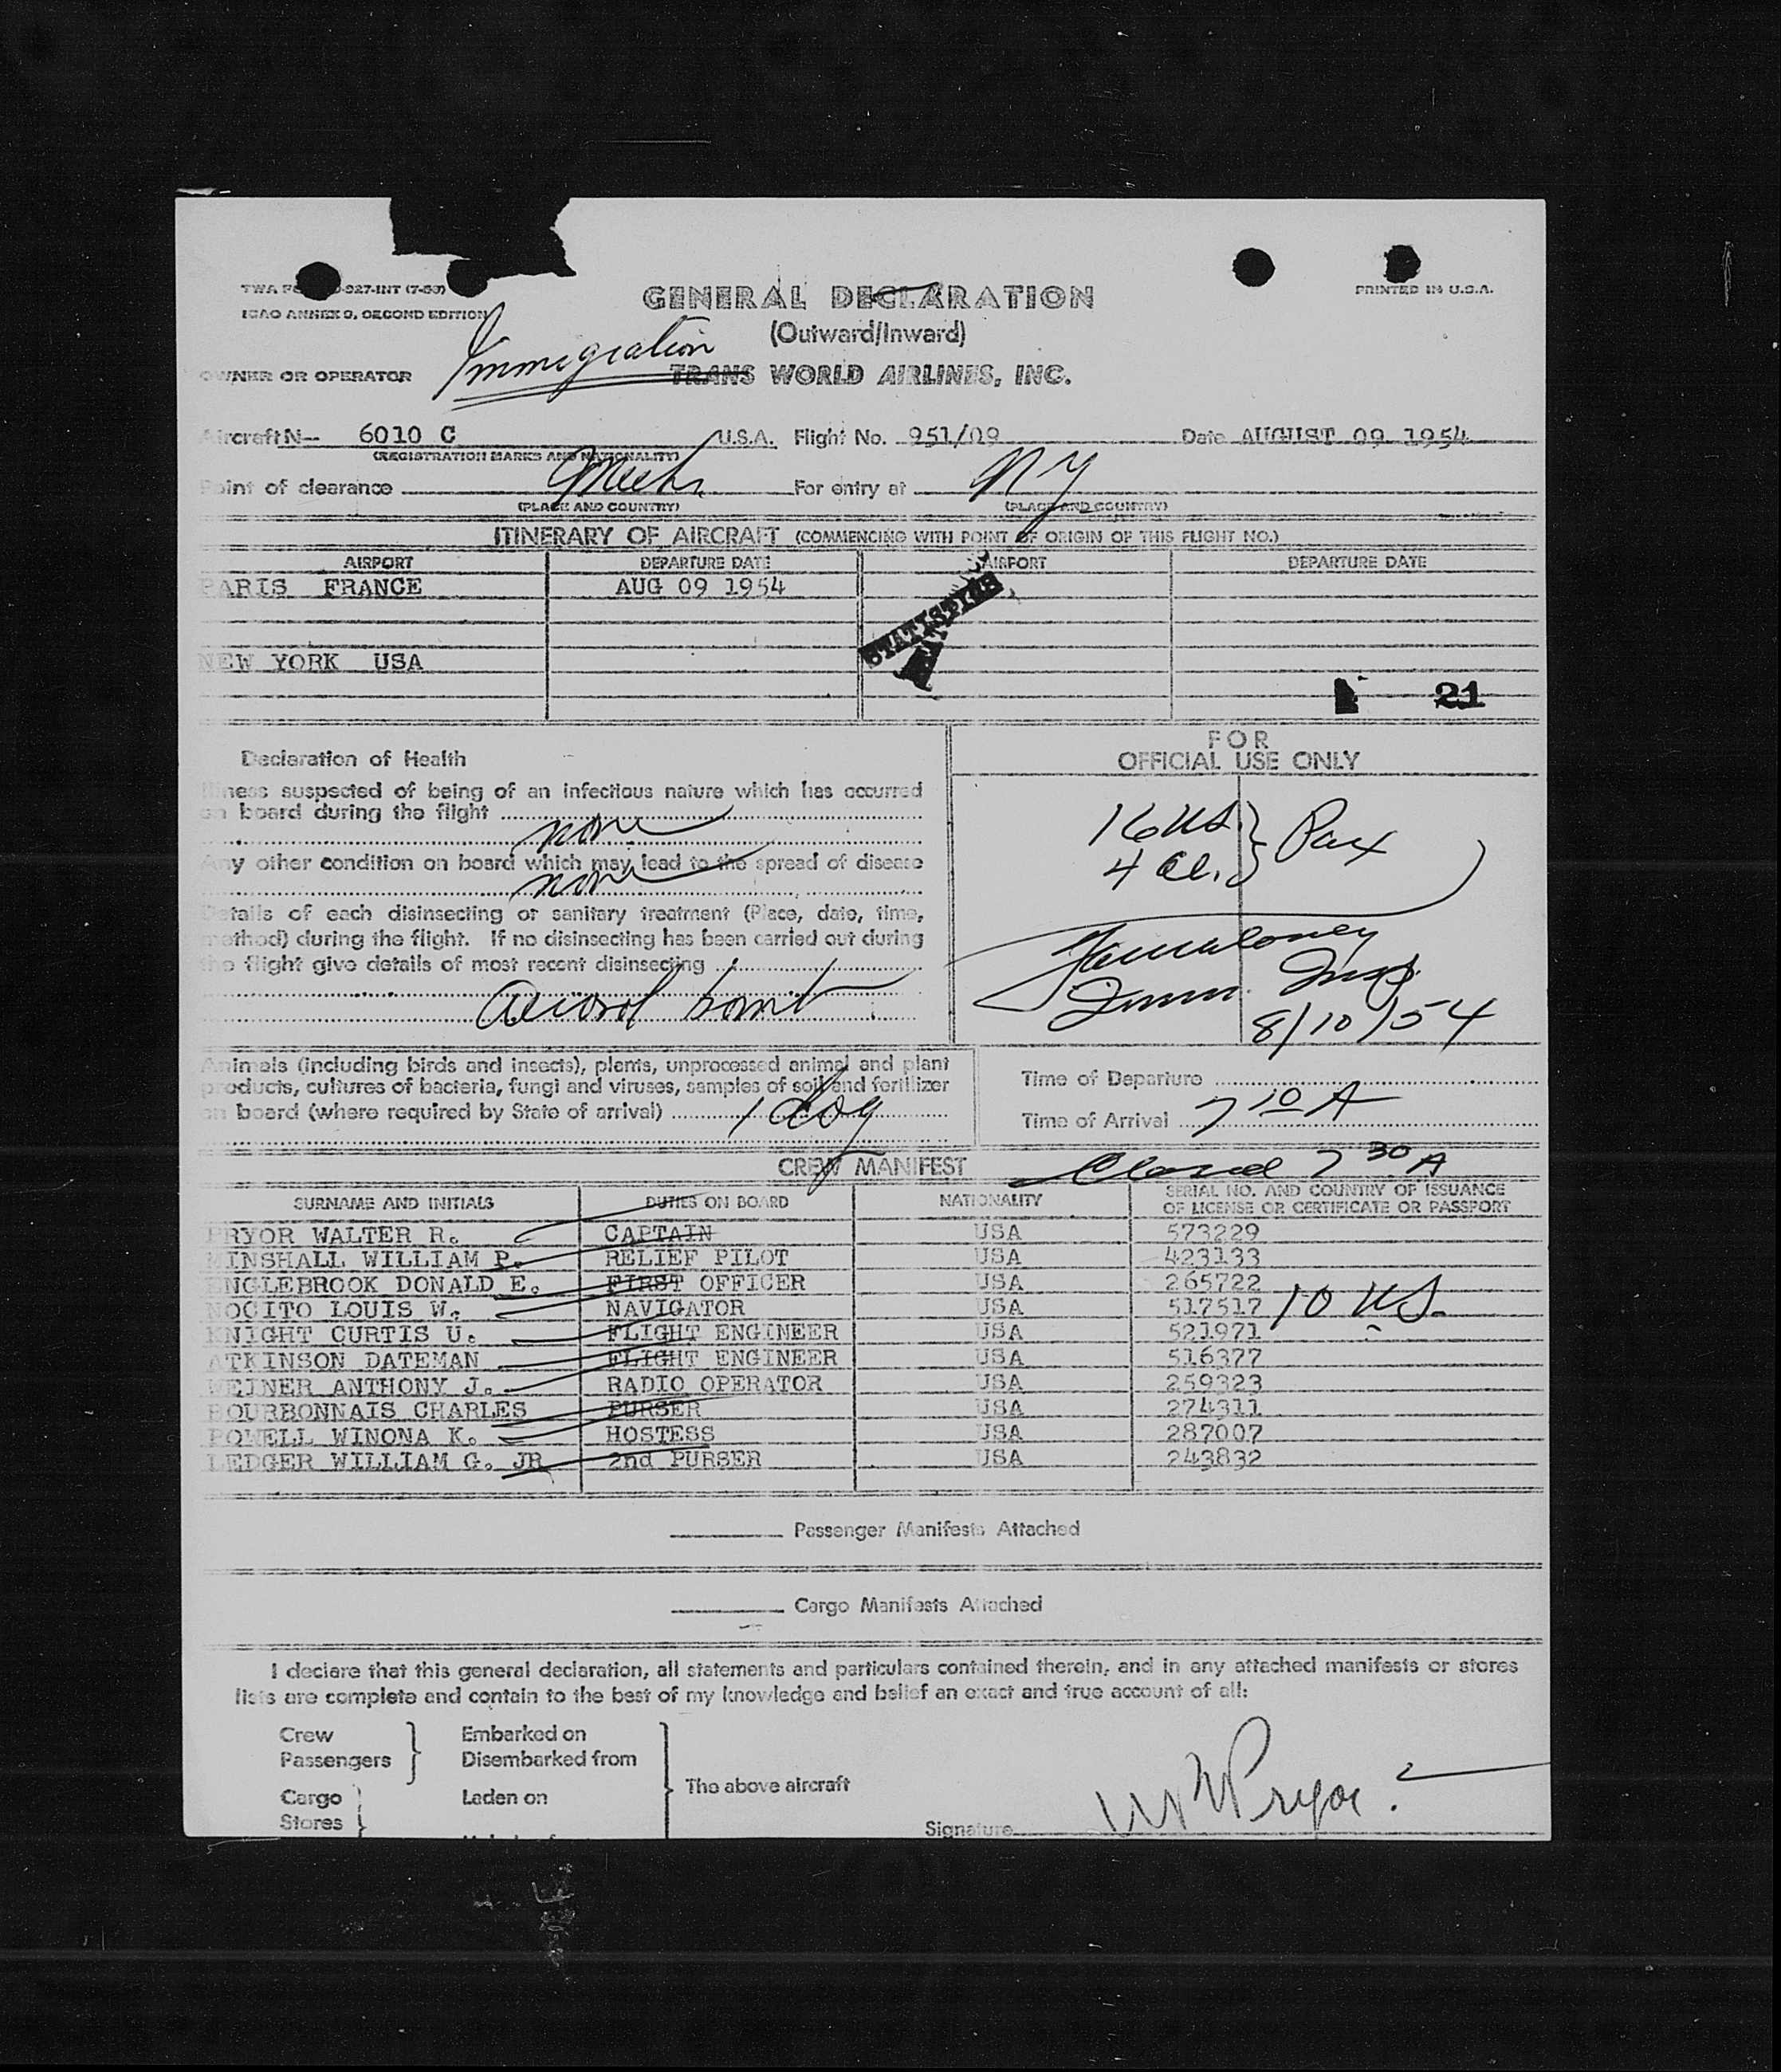 GENERAL DECLARATION
PRINTED IN U.S.A.
(Outward/Inward)
ICAO ANNEX 9, SECOND EDITION
Immigration
OWNER OR OPERATOR TRANS WORLD AIRLINES, INC.
Aircraft N-- 6010 C U.S.A. Flight No. 951/09 Date AUGUST 09 1954
(REGISTRATION MARKS AND NATIONALITY)
Point of clearance For entry at NY
(PLACE AND COUNTRY) (PLACE AND COUNTRY)
ITINERARY OF AIRCRAFT (COMMENCING WITH POINT OF ORIGIN OF THIS FLIGHT NO.)
AIRPORT DEPARTURE DATE AIRPORT DEPARTURE DATE
PARIS FRANCE AUG 09 1954
STATISTICS
NEW YORK USA
21
Declaration of Health
FOR
OFFICIAL USE ONLY
Illness suspected of being of an infectious nature which has occurred
on board during the flight
none
Any other condition on board which may lead to the spread of disease
none
Details of each disinsecting or sanitary treatment (Place, date, time,
method) during the flight. If no disinsecting has been carried out during
the flight give details of most recent disinsecting
aerosol bomb
16 US. } Pax
4 Al. }
Imm. Insp.
8/10/54
Animals (including birds and insects), plants, unprocessed animal and plant
products, cultures of bacteria, fungi and viruses, samples of soil and fertilizer
on board (where required by State of arrival) 1 dog
Time of Departure
Time of Arrival 7 10 A
CREW MANIFEST
Closed 7 30 A
SURNAME AND INITIALS DUTIES ON BOARD NATIONALITY SERIAL NO. AND COUNTRY OF ISSUANCE
OF LICENSE OR CERTIFICATE OR PASSPORT
PRYOR WALTER R. CAPTAIN USA 573229
MINSHALL WILLIAM P. RELIEF PILOT USA 423133
ENGLEBROOK DONALD E. FIRST OFFICER USA 265722
NOCITO LOUIS W. NAVIGATOR USA 517517 10 US.
KNIGHT CURTIS U. FLIGHT ENGINEER USA 521971
ATKINSON DATEMAN FLIGHT ENGINEER USA 516377
WEINER ANTHONY J. RADIO OPERATOR USA 259323
BOURBONNAIS CHARLES PURSER USA 274311
POWELL WINONA K. HOSTESS USA 287007
LEDGER WILLIAM G. JR 2nd PURSER USA 243832
Passenger Manifests Attached
Cargo Manifests Attached
I declare that this general declaration, all statements and particulars contained therein, and in any attached manifests or stores
lists are complete and contain to the best of my knowledge and belief an exact and true account of all:
Crew Embarked on
Passengers Disembarked from
The above aircraft
Cargo Laden on
Stores
Signature W R Pryor